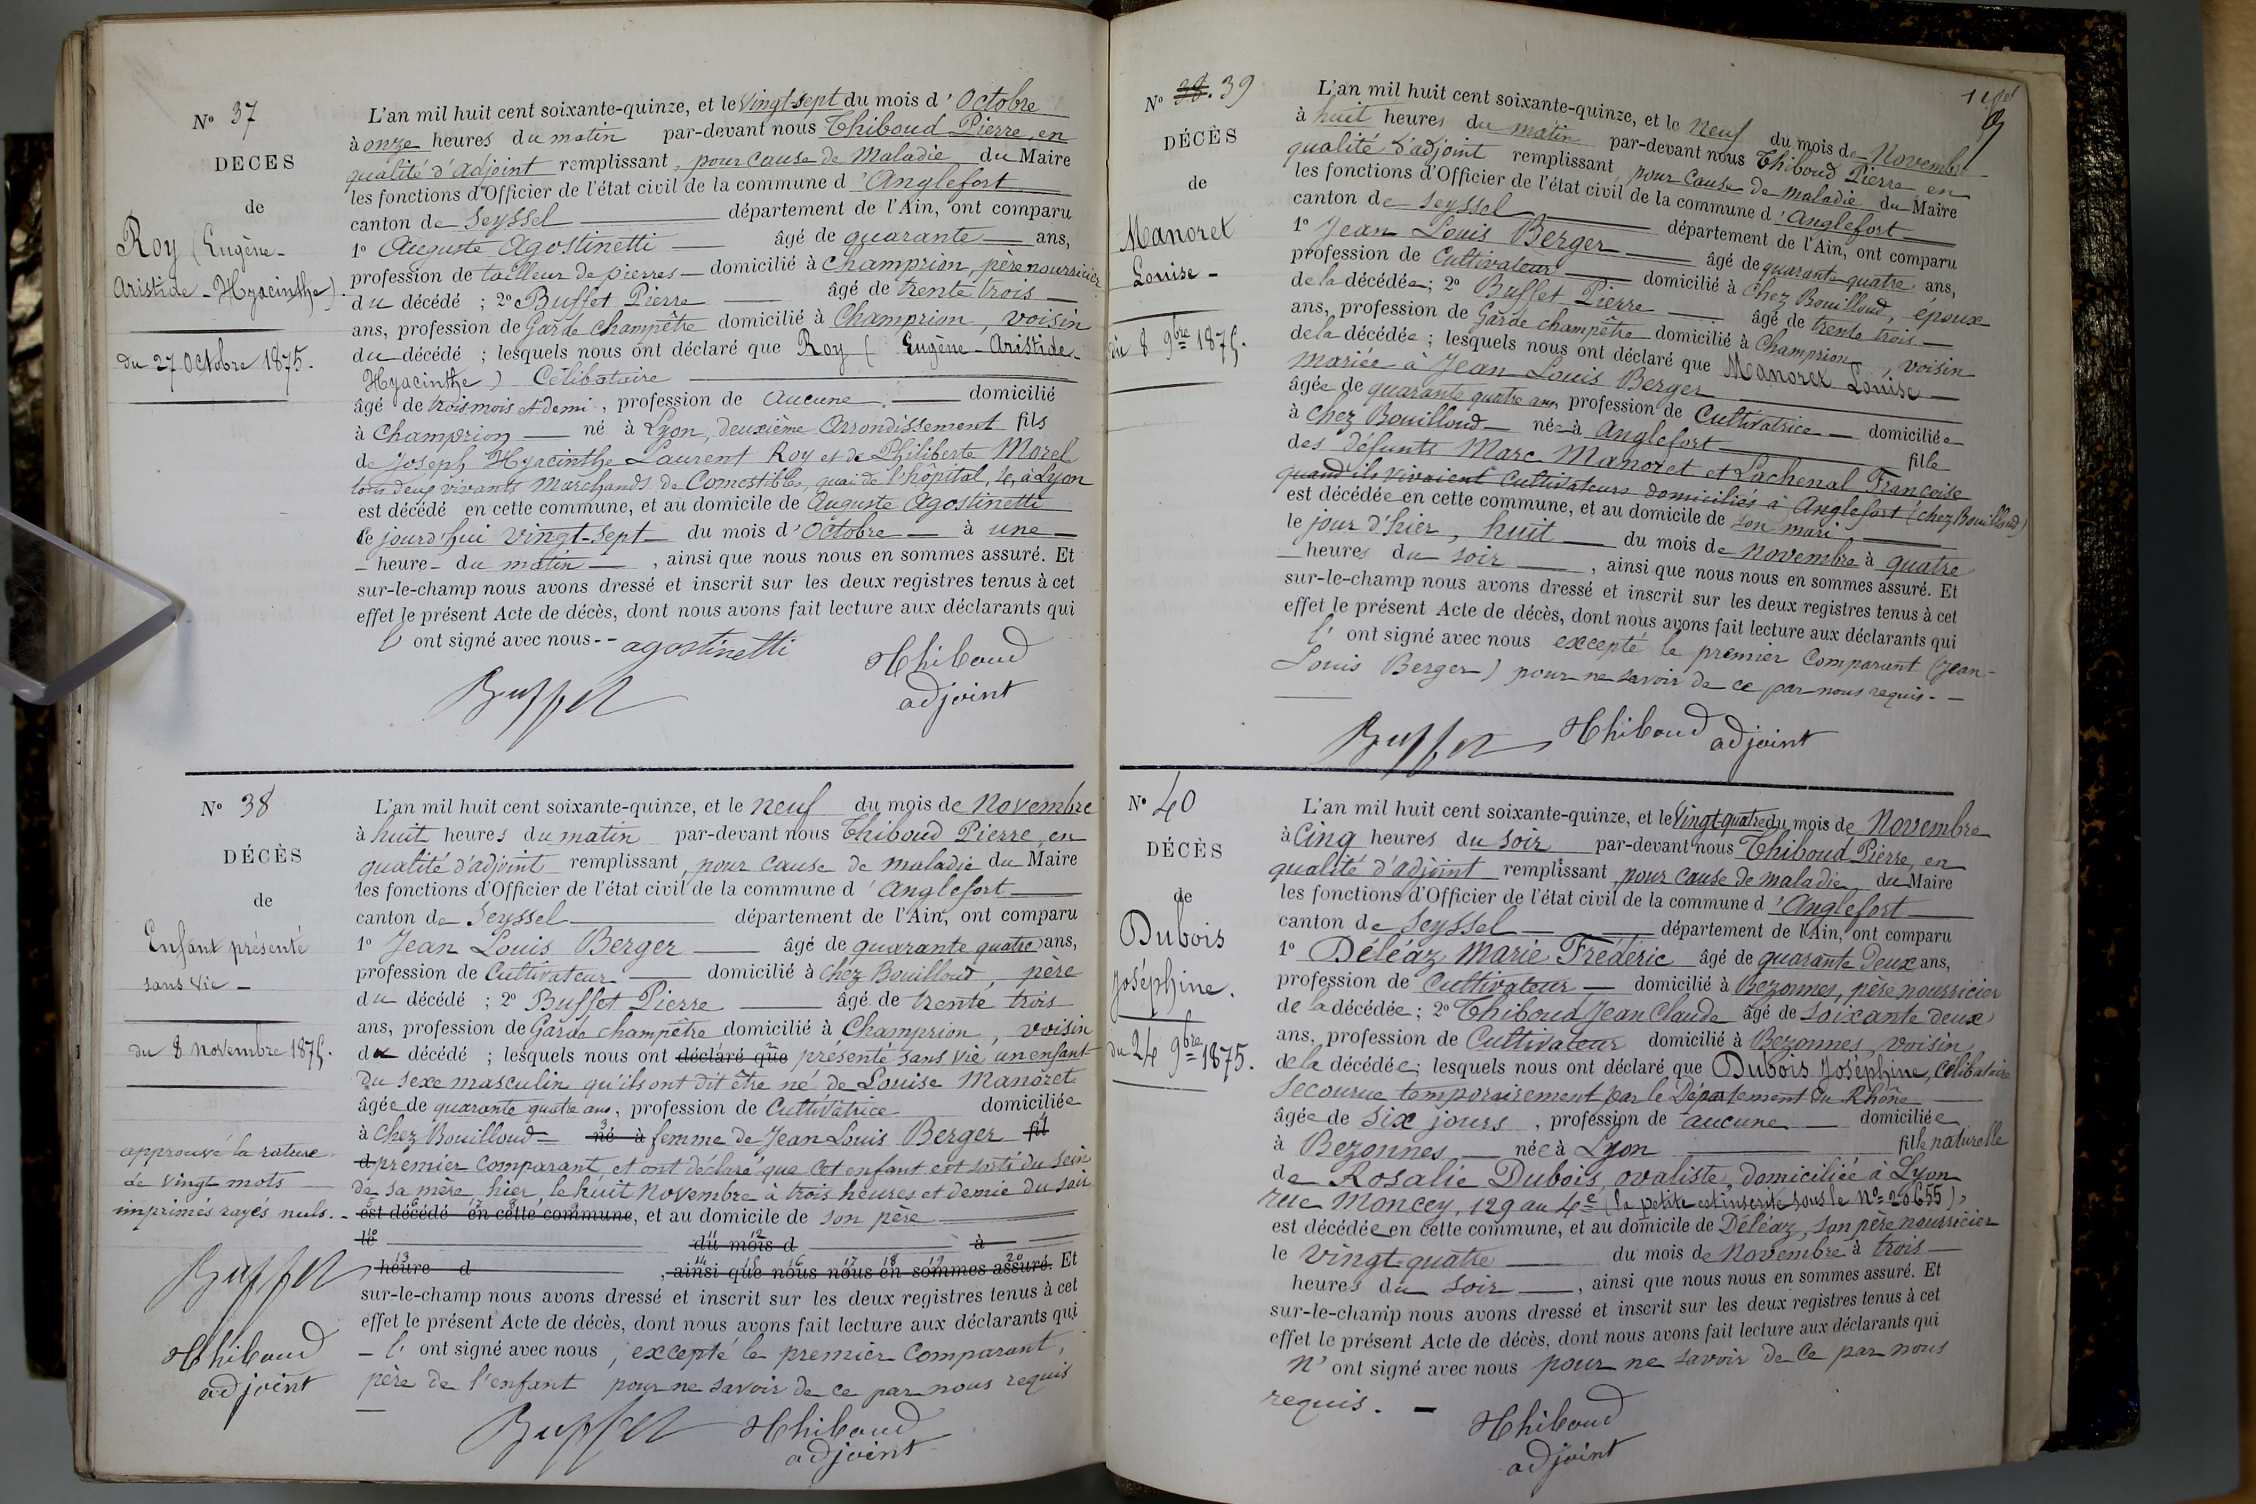 N° 37
DÉCÈS
de
Roy (Eugène-
Aristide-Hyacinthe).
du 27 Octobre 1875.
L'an mil huit cent soixante-quinze, et le vingt-sept du mois d'Octobre
à onze heures du matin par-devant nous Thiboud Pierre, en
qualité d'adjoint remplissant, pour cause de maladie du Maire
les fonctions d'Officier de l'état civil de la commune d'Anglefort
canton de Seyssel département de l'Ain, ont comparu
1° Auguste Agostinetti âgé de quarante ans,
profession de tailleur de pierres domicilié à Champrion, père nourricier
du décédé ; 2° Buffet Pierre âgé de trente trois
ans, profession de Garde champêtre domicilié à Champrion, voisin
du décédé ; lesquels nous ont déclaré que Roy (Eugène-Aristide-
Hyacinthe) Célibataire
âgé de trois mois et demi, profession de aucune domicilié
à Champrion né à Lyon, deuxième Arrondissement fils
de Joseph Hyacinthe Laurent Roy et de Philiberte Morel
tous deux vivants Marchands de Comestibles, quai de l'hôpital, 4, à Lyon
est décédé en cette commune, et au domicile de Auguste Agostinetti
ce jourd'hui vingt-sept du mois d'Octobre à une
heure du matin, ainsi que nous nous en sommes assuré. Et
sur-le-champ nous avons dressé et inscrit sur les deux registres tenus à cet
effet le présent Acte de décès, dont nous avons fait lecture aux déclarants qui
l' ont signé avec nous -- agostinetti
Thiboud
Buffet
adjoint
N° 38
DÉCÈS
de
Enfant présenté
sans vie -
du 8 novembre 1875.
approuvé la rature
de vingt mots
imprimés rayés nuls. -
Buffet
Thiboud
adjoint
L'an mil huit cent soixante-quinze, et le neuf du mois de Novembre
à huit heures du matin par-devant nous Thiboud Pierre, en
qualité d'adjoint remplissant, pour cause de maladie du Maire
les fonctions d'Officier de l'état civil de la commune d'Anglefort
canton de Seyssel département de l'Ain, ont comparu
1° Jean Louis Berger âgé de quarante quatre ans,
profession de Cultivateur domicilié à chez Bouilloud, père
du décédé ; 2° Buffet Pierre âgé de trente trois
ans, profession de Garde champêtre domicilié à Champrion, voisin
du décédé ; lesquels nous ont déclaré que présenté sans vie un enfant
du sexe masculin qu'ils ont dit être né de Louise Manoret
âgée de quarante quatre ans, profession de Cultivatrice domiciliée
à Chez Bouilloud né à femme de Jean Louis Berger fil
d premier comparant, et ont déclaré que cet enfant est sorti du sein
de sa mère, hier, le huit Novembre à trois heures et demie du soir
est décédé en cette commune, et au domicile de son père
le du mois d à
heure d , ainsi que nous nous en sommes assuré. Et
sur-le-champ nous avons dressé et inscrit sur les deux registres tenus à cet
effet le présent Acte de décès, dont nous avons fait lecture aux déclarants qui
- l' ont signé avec nous, excepté le premier comparant,
père de l'enfant pour ne savoir de ce par nous requis
Buffet Thiboud
adjoint
N° 38. 39
DÉCÈS
de
Manoret
Louise -
du 8 9bre 1875.
L'an mil huit cent soixante-quinze, et le neuf du mois de Novembre
à huit heures du matin par-devant nous Thiboud Pierre en
qualité d'adjoint remplissant, pour cause de maladie du Maire
les fonctions d'Officier de l'état civil de la commune d'Anglefort
canton de Seyssel département de l'Ain, ont comparu
1° Jean Louis Berger âgé de quarante quatre ans,
profession de Cultivateur domicilié à Chez Bouilloud, époux
de la décédée ; 2° Buffet Pierre âgé de trente trois
ans, profession de Garde champêtre domicilié à Champrion, voisin
de la décédée ; lesquels nous ont déclaré que Manoret Louise
mariée à Jean Louis Berger
âgée de quarante quatre ans, profession de Cultivatrice domiciliée
à Chez Bouilloud née à Anglefort fille
des défunts Marc Manoret et Lachenal Françoise
quand ils vivaient cultivateurs domiciliés à Anglefort (chez Bouilloud)
est décédée en cette commune, et au domicile de son mari
le jour d'hier, huit du mois de novembre à quatre
heures du soir, ainsi que nous nous en sommes assuré. Et
sur-le-champ nous avons dressé et inscrit sur les deux registres tenus à cet
effet le présent Acte de décès, dont nous avons fait lecture aux déclarants qui
l' ont signé avec nous excepté le premier Comparant (Jean-
Louis Berger) pour ne savoir de ce par nous requis. -
Buffet Thiboud adjoint
N° 40
DÉCÈS
de
Dubois
Joséphine.
du 24 9bre 1875.
L'an mil huit cent soixante-quinze, et le vingt quatre du mois de Novembre
à Cinq heures du soir par-devant nous Thiboud Pierre, en
qualité d'adjoint remplissant pour cause de maladie du Maire
les fonctions d'Officier de l'état civil de la commune d'Anglefort
canton de Seyssel département de l'Ain, ont comparu
1° Déléaz Marie Frédéric âgé de quarante deux ans,
profession de Cultivateur domicilié à Bezonnes, père nourricier
de la décédée ; 2° Thiboud Jean Claude âgé de soixante deux
ans, profession de Cultivateur domicilié à Bezonnes, voisin
de la décédée ; lesquels nous ont déclaré que Dubois Joséphine, Célibataire
Secourue temporairement par le Département du Rhône
âgée de six jours, profession de aucune domiciliée
à Bezonnes née à Lyon fille naturelle
de Rosalie Dubois, ovaliste, domiciliée à Lyon
rue Moncey, 129 au 4e (la petite est inscrite sous le N° 20655),
est décédée en cette commune, et au domicile de Déléaz, son père nourricier
le vingt-quatre du mois de Novembre à trois
heures du soir, ainsi que nous nous en sommes assuré. Et
sur-le-champ nous avons dressé et inscrit sur les deux registres tenus à cet
effet le présent Acte de décès, dont nous avons fait lecture aux déclarants qui
n' ont signé avec nous pour ne savoir de ce par nous
requis. -
Thiboud
adjoint